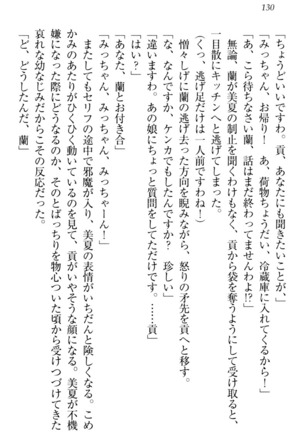 130
「ちょうどいいですわ。貢、あなたにも聞きたいことが」
「みっちゃん、お帰り!　あ、荷物ちょうだい、冷蔵庫に入れてくるから!」
「あ、こら待ちなさい蘭、話はまだ終わってませんわよ!?」
無論、蘭が美夏の制止を聞くわけもなく、貢から袋を奪うようにして受け取ると、
一目散にキッチンへと逃げてしまった。
(くっ、逃げ足だけは一人前ですわね!)
憎々しげに蘭の逃げ去った方向を睨みながら、怒りの矛先を貢へと移す。
「な、なんですか、ケンカでもしたんですか?　珍しい」
「違いますわ。あの娘にちょっと質問をしてただけです。……貢」
「はい?」
「あなた、蘭とお付き合」
「みっちゃん、みっちゃん、みっちゃーん!」
またしてもセリフの途中で邪魔が入り、美夏の表情がいちだんと険しくなる。こめ
かみのあたりがひくひく動いているのを見て、貢がいやそうな顔になる。美夏が不機
嫌になった際にどうなるのか、そのとばっちりを物心ついた頃から受けつづけてきた
哀れな幼なじみだからこその反応だった。
「ど、どうしたんだ、蘭」